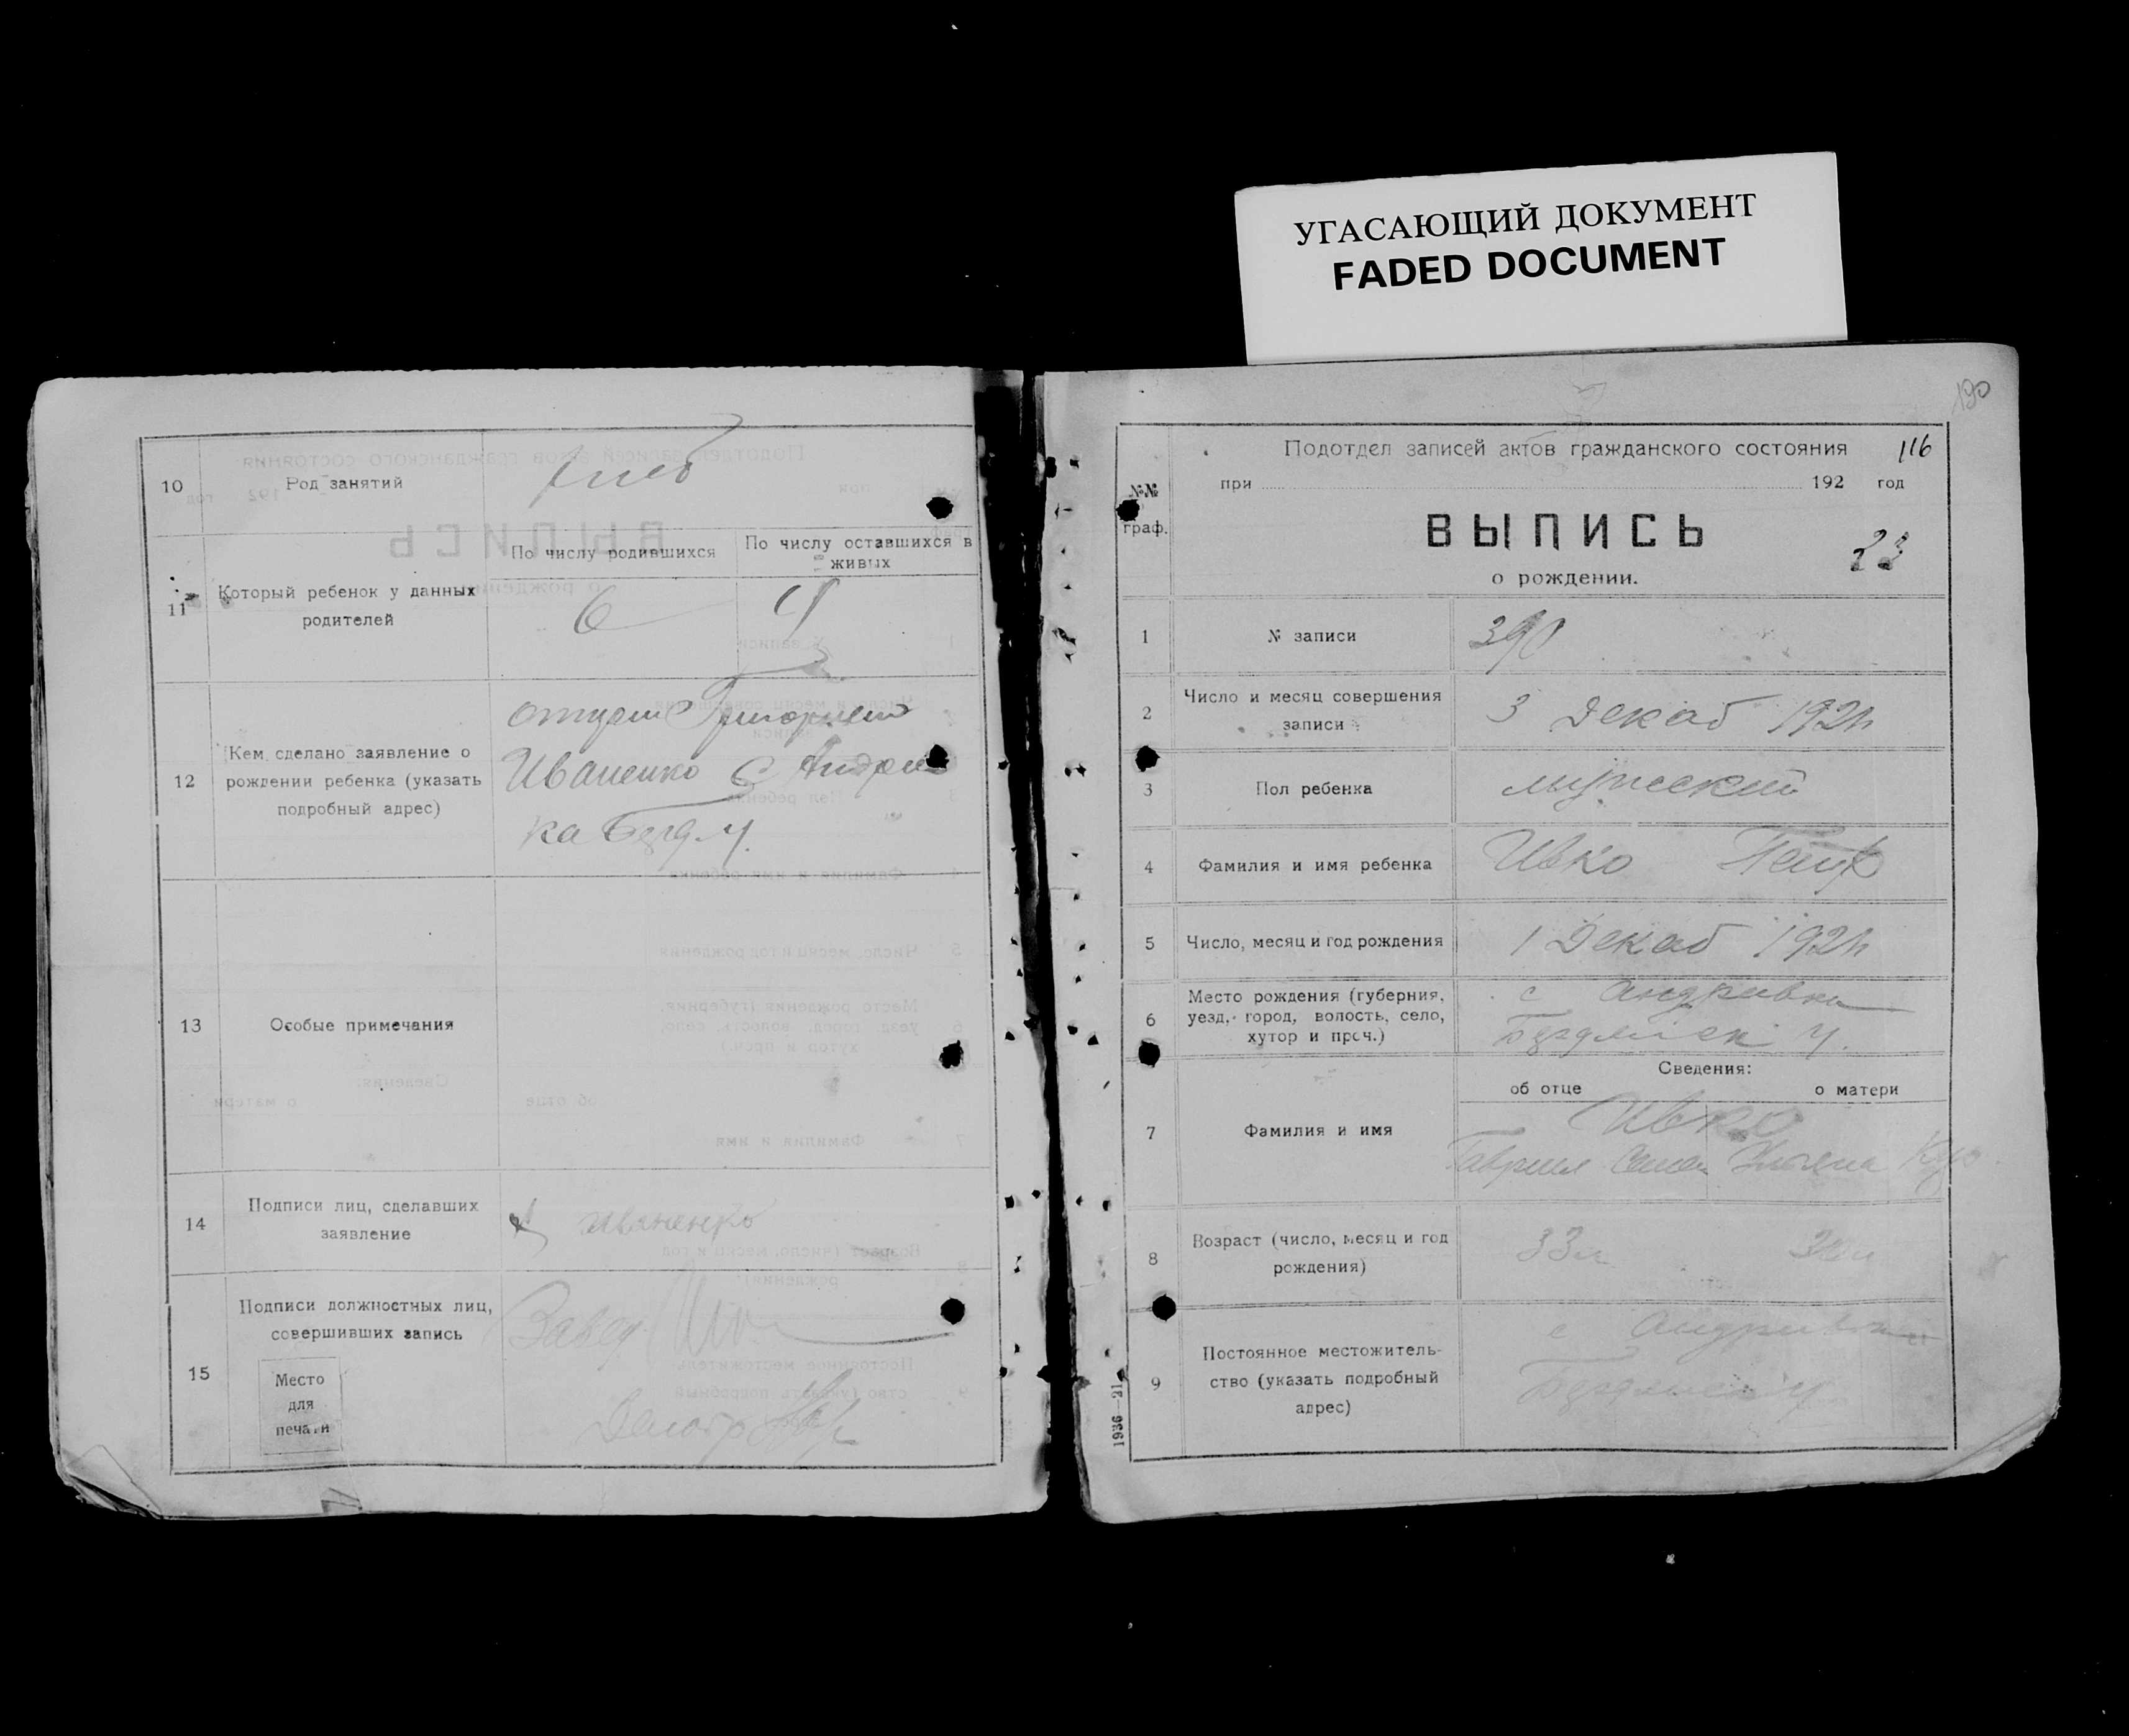 УГАСАЮЩИЙ ДОКУМЕНТ
FADED DOCUMENT
10 Род занятий хлеб
11 Который ребенок у данных родителей
По числу родившихся
По числу оставшихся в живых
6 4
12 Кем сделано заявление о рождении ребенка (указать подробный адрес)
отцом Григорием
Иваненко с Андрив
ка Бердм у.
13 Особые примечания
14 Подписи лиц, сделавших заявление
Иваненко
15 Подписи должностных лиц, совершивших запись
Завед
Делопр
Место
для
печати
190
116
№№ граф.
Подотдел записей актов гражданского состояния
при 192 год
ВЫПИСЬ
о рождении.
23
1 № записи 390
2 Число и месяц совершения записи 3 Декаб 1921
3 Пол ребенка мужеский
4 Фамилия и имя ребенка Ивко Петр
5 Число, месяц и год рождения 1 Декаб 1921
6 Место рождения (губерния, уезд, город, волость, село, хутор и проч.)
с Андривка
у.
Сведения:
об отце о матери
7 Фамилия и имя
Ивко
Гавриил Семен Ульяна
8 Возраст (число, месяц и год рождения) 33л
9 Постоянное местожительство (указать подробный адрес)
с Андривка
у
1936—21